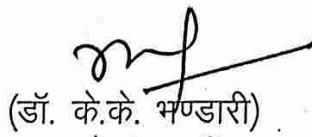 (डॉ. के.के. भण्डारी)